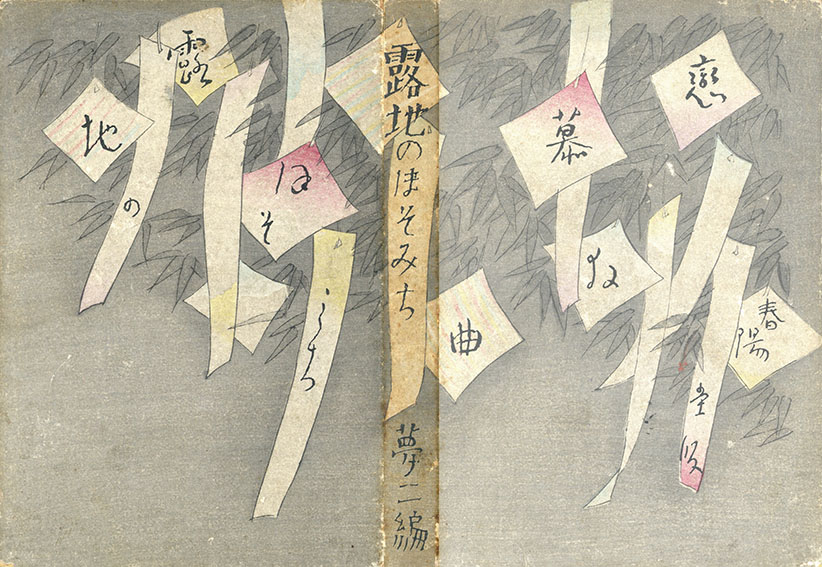 戀
慕
曲
春陽
堂版
露地のほそみち
夢二編
露
地
の
ほ
そ
みち